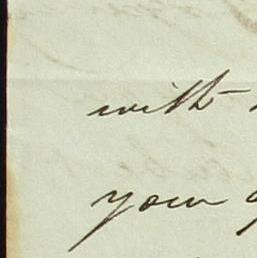 with
your